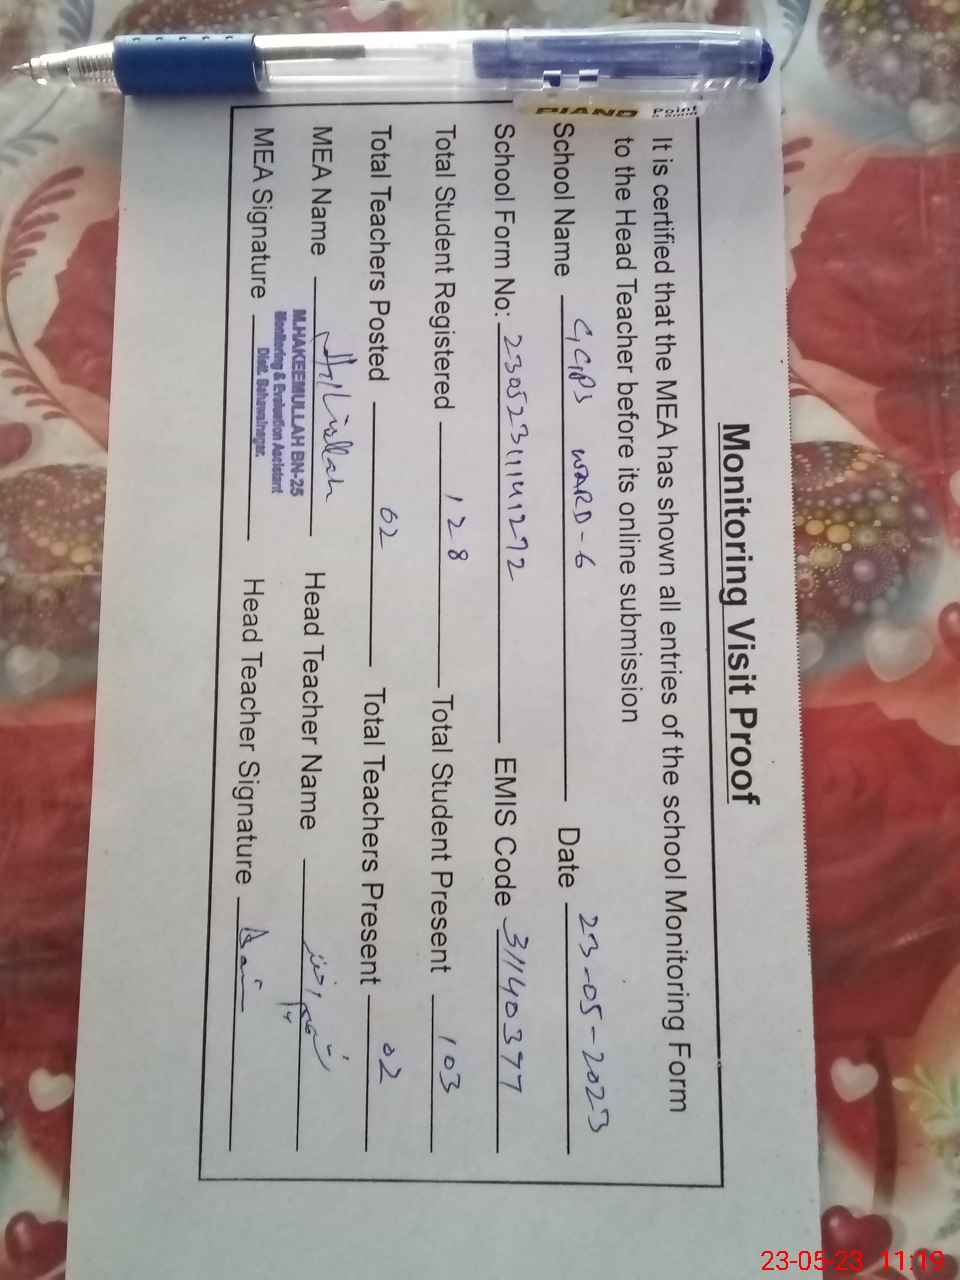 PIANO Point
Monitoring Visit Proof
It is certified that the MEA has shown all entries of the school Monitoring Form
to the Head Teacher before its online submission
School Name GGPS WARD-6 Date 23-05-2023
School Form No: EMIS Code 31140377
Total Student Registered 128 Total Student Present 103
Total Teachers Posted 02 Total Teachers Present 02
MEA Name Head Teacher Name
M.HAKEEMULLAH BN-25
Monitoring & Evaluation Assistant
Distt. Bahawalnagar.
MEA Signature Head Teacher Signature
23-05-23 11:19